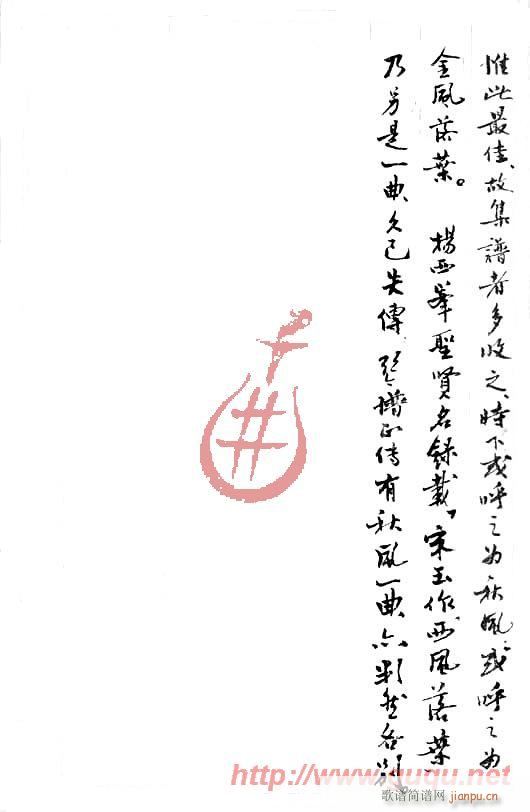 惟此最佳、故集譜者多收之、時下或呼之为秋風、或呼之为
金風落葉。 楊西峯聖賢名録載，宋玉作西風落葉
乃另是一曲、久已失傳 琴譜正传有秋風一曲、亦判然各别
http://www.yuqu.net
歌谱简谱网
jianpu.cn